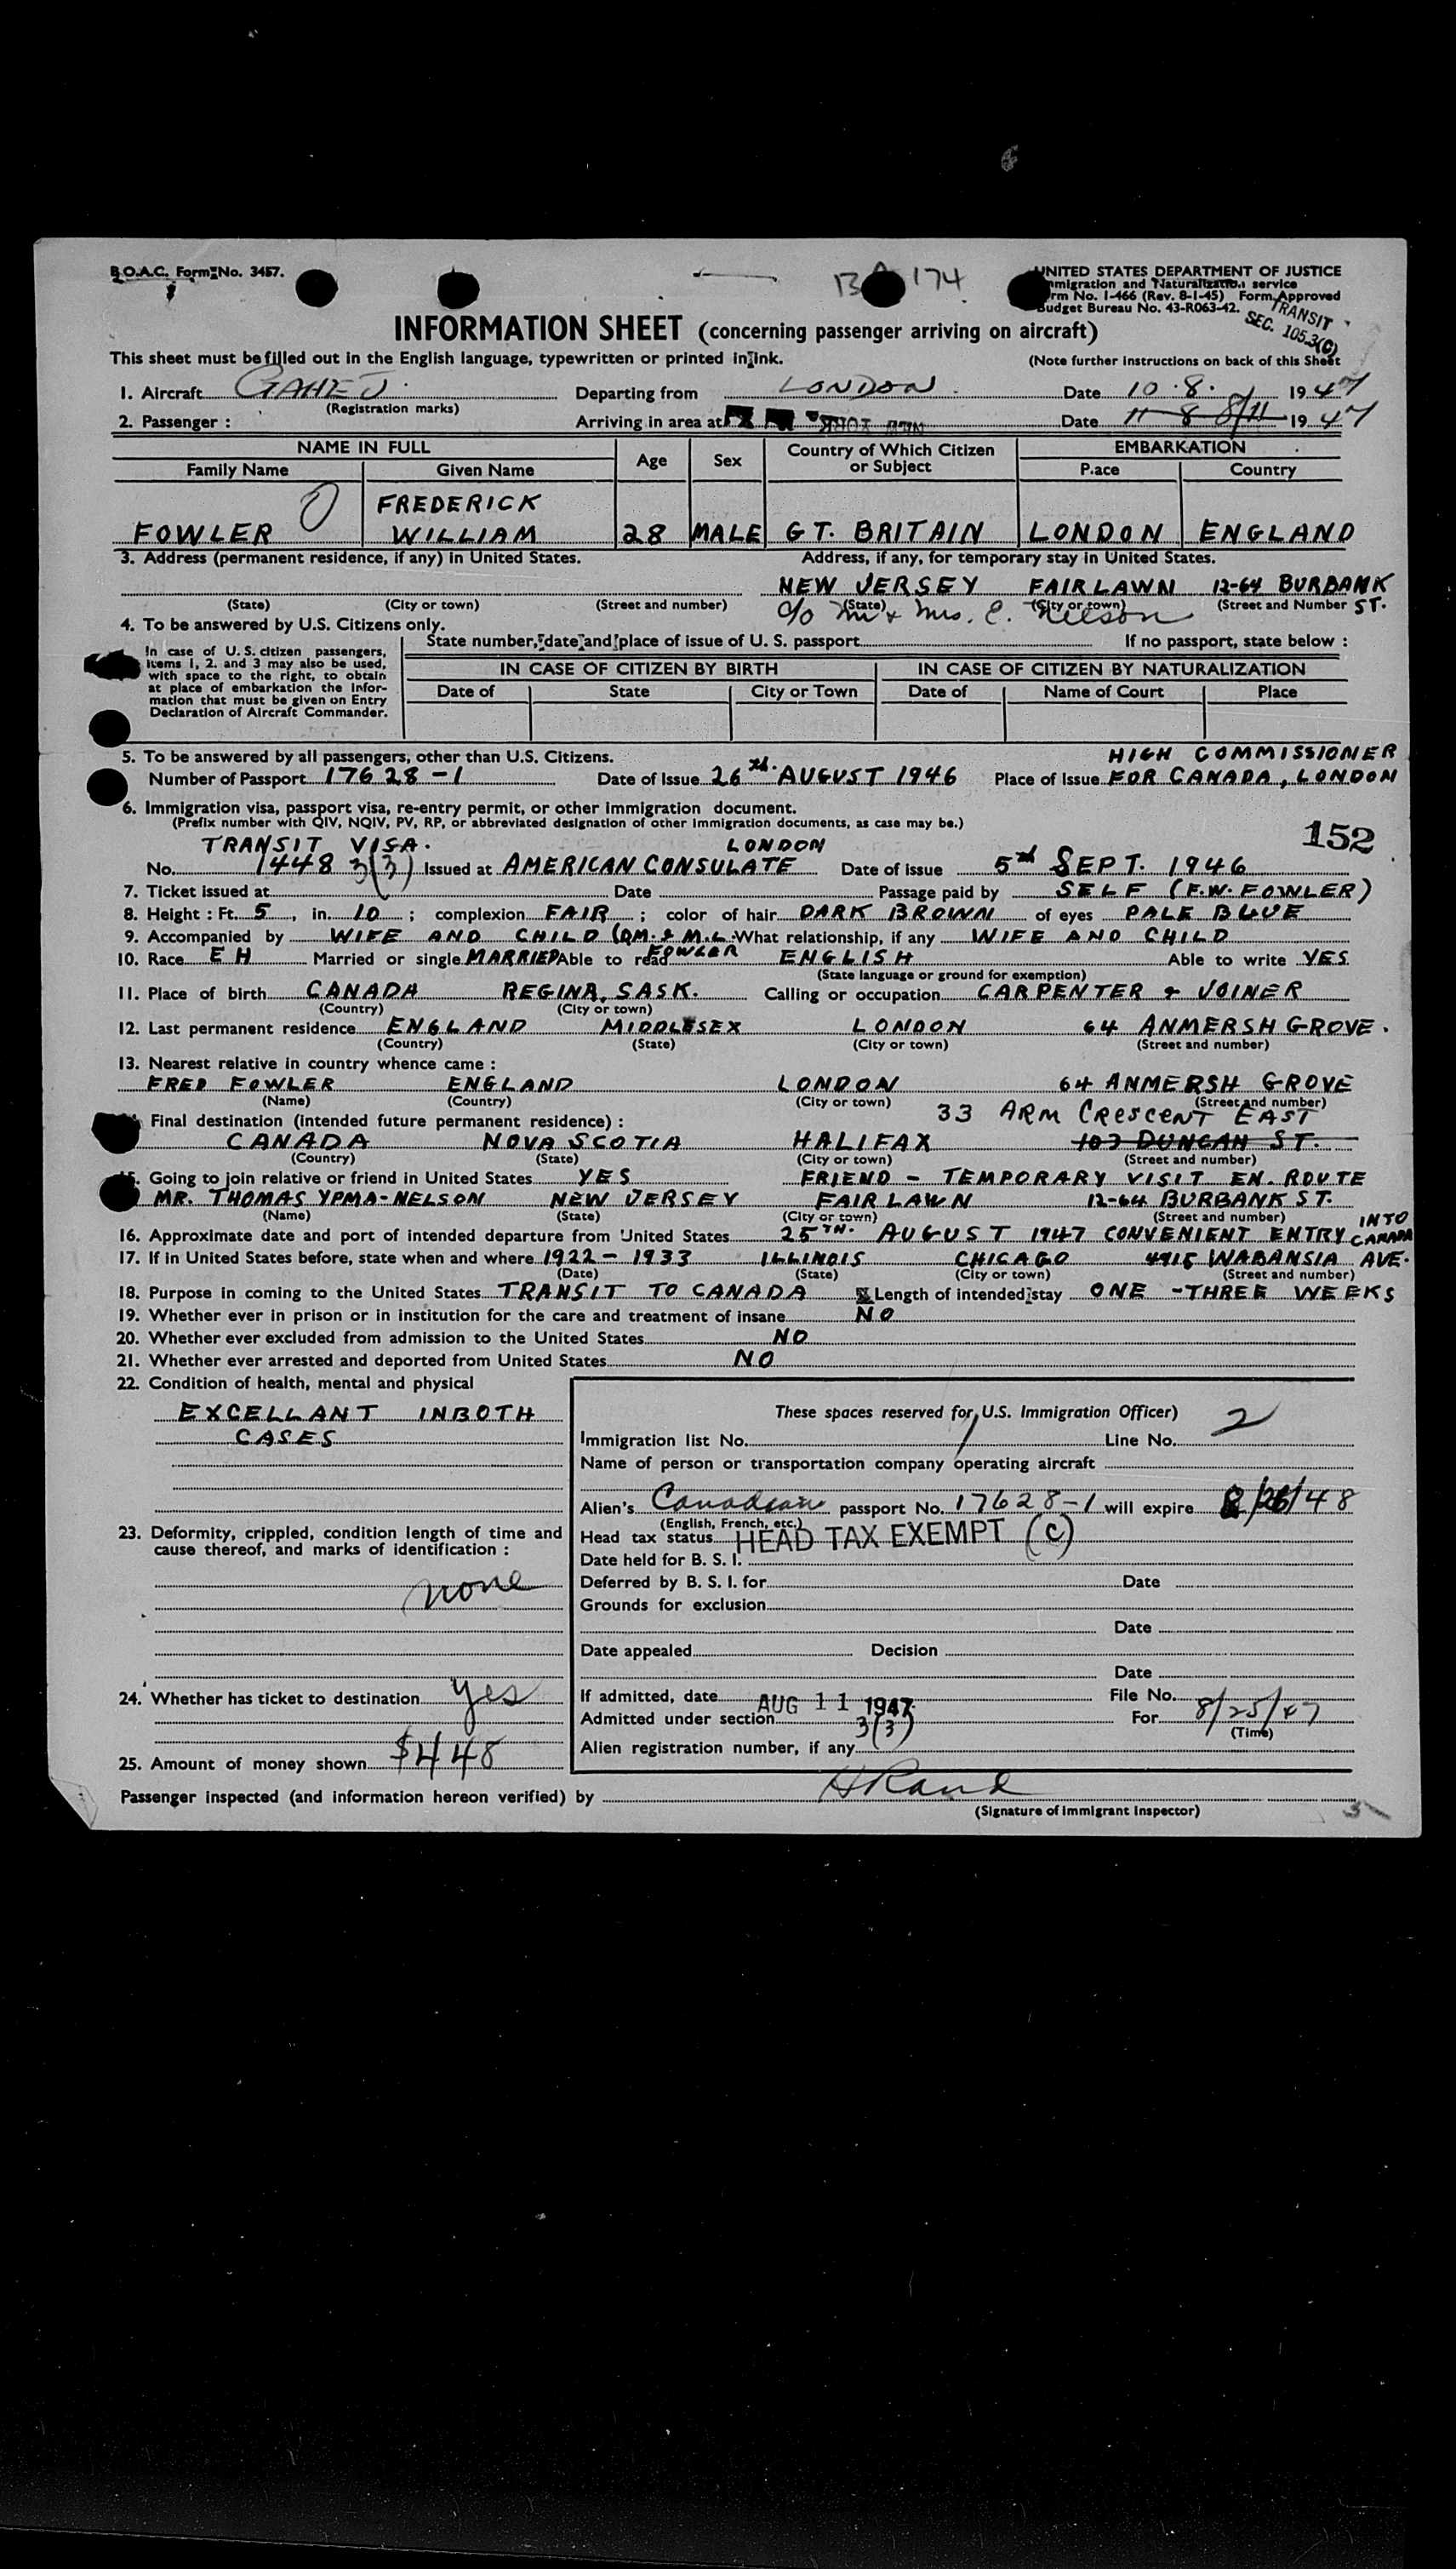 B.O.A.C. Form No. 3457.
13 174
UNITED STATES DEPARTMENT OF JUSTICE
Immigration and Naturalization service
Form No. I-466 (Rev. 8-1-45) Form Approved
Budget Bureau No. 43-R063-42.
TRANSIT
SEC. 105.3(C)
INFORMATION SHEET (concerning passenger arriving on aircraft)
This sheet must be filled out in the English language, typewritten or printed in ink. (Note further instructions on back of this Sheet
1. Aircraft GAHEJ Departing from LONDON Date 10.8. 1947
(Registration marks)
2. Passenger : Arriving in area at NEW YORK Date 11 8 8/11 1947
NAME IN FULL Age Sex Country of Which Citizen or Subject EMBARKATION
Family Name Given Name Place Country
FREDERICK
FOWLER WILLIAM 28 MALE GT. BRITAIN LONDON ENGLAND
3. Address (permanent residence, if any) in United States. Address, if any, for temporary stay in United States.
NEW JERSEY FAIRLAWN 12-64 BURBANK ST.
(State) (City or town) (Street and number) (State) (City or town) (Street and Number
c/o Mr & Mrs. E. Nelson
4. To be answered by U.S. Citizens only.
In case of U.S. citizen passengers, items 1, 2. and 3 may also be used, with space to the right, to obtain at place of embarkation the information that must be given on Entry Declaration of Aircraft Commander.
State number, date and place of issue of U. S. passport If no passport, state below :
IN CASE OF CITIZEN BY BIRTH IN CASE OF CITIZEN BY NATURALIZATION
Date of State City or Town Date of Name of Court Place
5. To be answered by all passengers, other than U.S. Citizens. HIGH COMMISSIONER
Number of Passport 17628-1 Date of Issue 26th. AUGUST 1946 Place of Issue FOR CANADA, LONDON
6. Immigration visa, passport visa, re-entry permit, or other immigration document.
(Prefix number with QIV, NQIV, PV, RP, or abbreviated designation of other immigration documents, as case may be.)
152
TRANSIT VISA. LONDON
No. 1448 3(3) Issued at AMERICAN CONSULATE Date of issue 5th SEPT. 1946
7. Ticket issued at Date Passage paid by SELF (F.W. FOWLER)
8. Height : Ft. 5, in. 10 ; complexion FAIR ; color of hair DARK BROWN of eyes PALE BLUE
9. Accompanied by WIFE AND CHILD (D.M. & M.L. FOWLER What relationship, if any WIFE AND CHILD
10. Race EH Married or single MARRIED Able to read ENGLISH Able to write YES
(State language or ground for exemption)
11. Place of birth CANADA REGINA, SASK. Calling or occupation CARPENTER & JOINER
(Country) (City or town)
12. Last permanent residence ENGLAND MIDDLESEX LONDON 64 ANMERSH GROVE.
(Country) (State) (City or town) (Street and number)
13. Nearest relative in country whence came :
FRED FOWLER ENGLAND LONDON 64 ANMERSH GROVE
(Name) (Country) (City or town) (Street and number)
33 ARM CRESCENT EAST
Final destination (intended future permanent residence) :
CANADA NOVA SCOTIA HALIFAX 103 DUNCAN ST.
(Country) (State) (City or town) (Street and number)
15. Going to join relative or friend in United States YES FRIEND - TEMPORARY VISIT EN. ROUTE
MR. THOMAS YPMA-NELSON NEW JERSEY FAIRLAWN 12-64 BURBANK ST.
(Name) (State) (City or town) (Street and number)
16. Approximate date and port of intended departure from United States 25TH. AUGUST 1947 CONVENIENT ENTRY INTO CANADA
17. If in United States before, state when and where 1922 - 1933 ILLINOIS CHICAGO 4915 WABANSIA AVE.
(Date) (State) (City or town) (Street and number)
18. Purpose in coming to the United States TRANSIT TO CANADA Length of intended stay ONE - THREE WEEKS
19. Whether ever in prison or in institution for the care and treatment of insane NO
20. Whether ever excluded from admission to the United States NO
21. Whether ever arrested and deported from United States NO
22. Condition of health, mental and physical
EXCELLANT IN BOTH
CASES
23. Deformity, crippled, condition length of time and cause thereof, and marks of identification :
none
24. Whether has ticket to destination yes
25. Amount of money shown $448
These spaces reserved for U.S. Immigration Officer)
Immigration list No. 1 Line No. 2
Name of person or transportation company operating aircraft
Alien's Canadian passport No. 17628-1 will expire 8/26/48
(English, French, etc.)
Head tax status HEAD TAX EXEMPT (C)
Date held for B. S. I.
Deferred by B. S. I. for Date
Grounds for exclusion
Date
Date appealed Decision
Date
If admitted, date AUG 11 1947 File No.
Admitted under section 3(3) For 8/25/47
(Time)
Alien registration number, if any
Passenger inspected (and information hereon verified) by H Rand
(Signature of Immigrant Inspector)
3